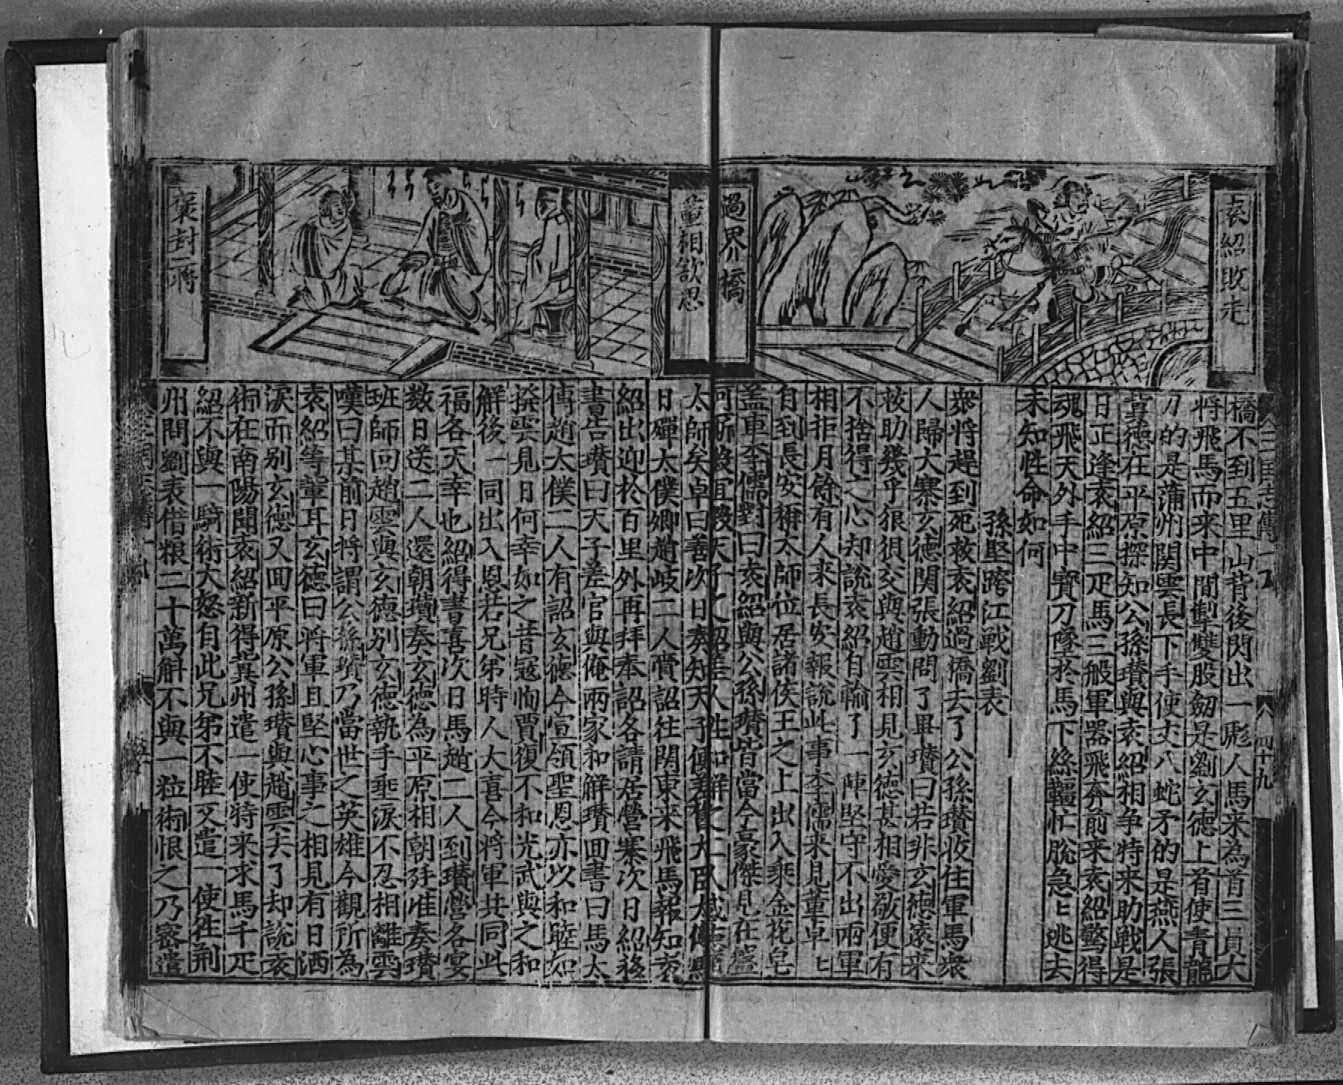 袁紹敗走
過界橋
橋不到五里山背後閃出一彪人馬来為首三員大
將飛馬而来中間掣雙股劒是劉玄德上首使青龍
刀的是蒲州関雲長下手使丈八蛇矛的是燕人張
冀德在平原探知公孫瓚與袁紹相争特来助戰是
日正逢袁紹三疋馬三般軍器飛奔前来袁紹驚得
魂飛天外手中寳刀墜於馬下絲韁忙脫急〻逃去
未知性命如何
孫堅跨江戰劉表
衆將趕到死救袁紹過橋去了公孫瓚收住軍馬衆
人歸大寨玄德関張動問了畢瓚曰若非玄德遠来
救助幾乎狼狽交與趙雲相見玄德甚相愛敬便有
不捨得之心却說袁紹自輸了一陣堅守不出兩軍
相拒月餘有人来長安報說此事李儒来見董卓〻
自到長安稱太師位居諸侯王之上出入乘金花皂
盖車李儒對曰袁紹與公孫瓚皆當今豪傑見在盤
河厮殺宜假天子之詔差人往和解之二人感德
太師矣卓曰善次日奏知天子便差太傅馬
日磾太僕卿趙岐二人賫詔往関東来飛馬報知袁
紹出迎於百里外再拜奉詔各請居營寨次日紹移
書告瓚曰天子差官與俺兩家和解瓚回書曰馬太
傅趙太僕二人有詔玄德今宣領聖恩亦以和睦如
撥雲見日何幸如之昔寇恂賈復不和光武與之和
解後一同出入恩若兄弟時人大喜今將軍共同此
福各天幸也紹得書喜次日馬趙二人到瓚營各宴
数日送二人還朝瓚奏玄德為平原相朝廷准奏瓚
班師回趙雲與玄德别玄德執手垂淚不忍相離雲
嘆曰某前日將謂公孫瓚乃當世之英雄今觀所為
袁紹等輩耳玄德曰將軍且堅心事之相見有日洒
淚而别玄德又回平原公孫瓚與趙雲去了却說袁
術在南陽聞袁紹新得冀州遣一使特来求馬千疋
紹不與一騎術大怒自此兄弟不睦又遣一使徃荆
州問劉表借粮二十萬斛不與一粒術恨之乃密遣
董相欲思
褒封二將